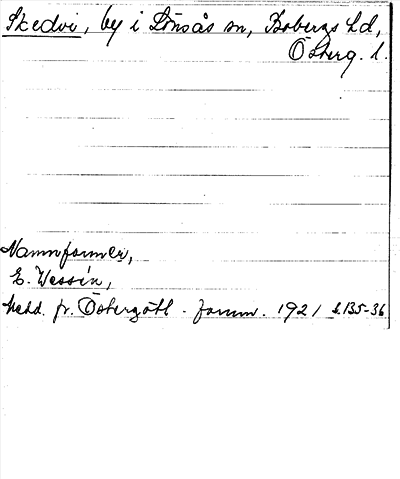 Skedvi, by i Lönsås sn, Bobergs hd,
Österg. l.
Namnformer,
E. Wessén,
Medd. fr. Östergötl. fornm. 1921 s. 135-36